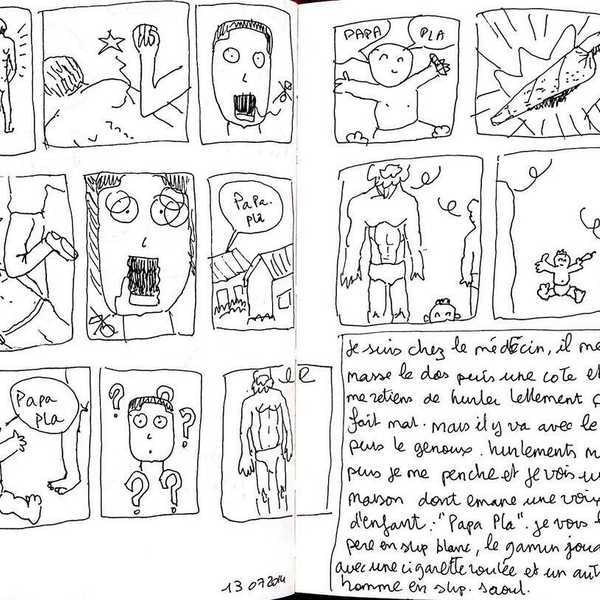 PAPA
PLA
PaPa.
pla
Papa
Pla
? ? ? ? ?
13 07 2014
Je suis chez le médecin, il me
masse le dos puis une cote et
me retiens de hurler tellement ç
fait mal. mais il y va avec le
puis le genoux. hurlements m
puis je me penche et je vois un
maison dont emane une voix
d'enfant: "Papa Pla". je vois l
père en slip blanc, le gamin joua
avec une cigarette roulée et un aut
homme en slip. saoul.